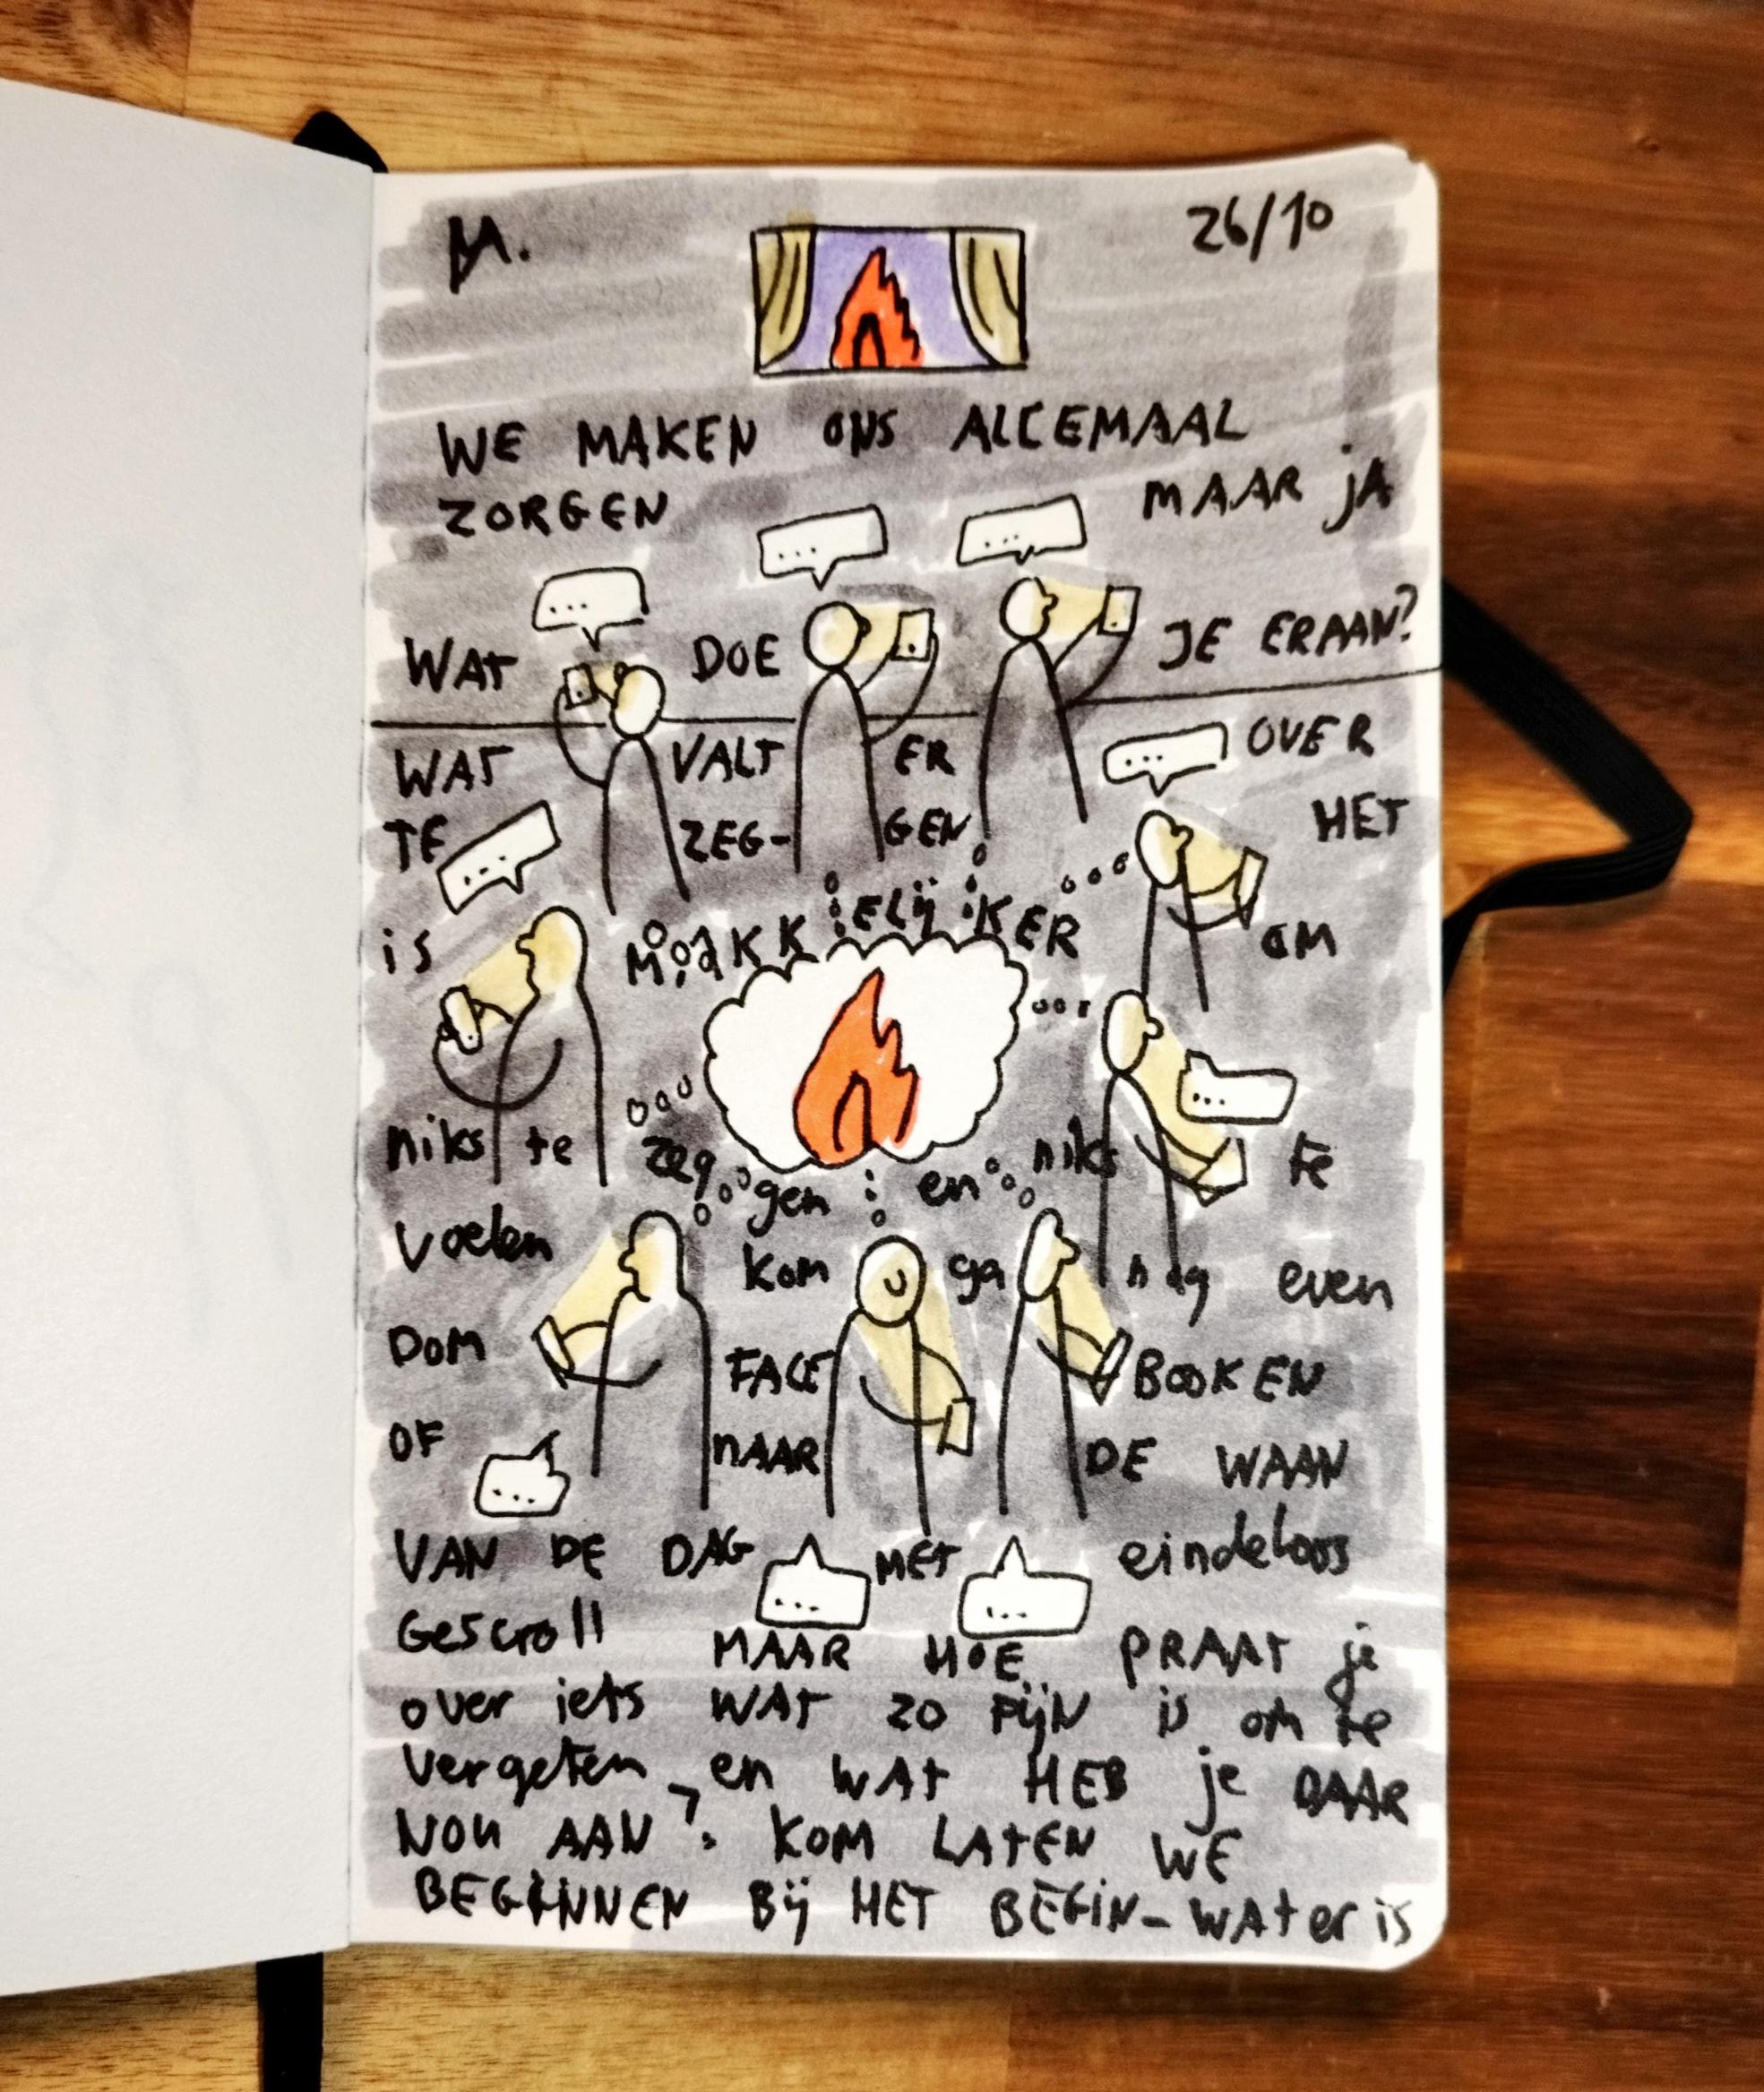 M. 26/10
WE MAKEN ONS ALLEMAAL
ZORGEN MAAR jA
...
...
...
WAT DOE JE ERAAN?
WAT VALT ER OVER
...
TE ZEG- GEN HET
...
iS MAKKELIJKER OM
...
niks te zeg gen en niks te
voelen kom ga nog even
DOM FACE BOOKEN
OF NAAR DE WAAN
...
VAN DE DAG MET eindeloos
...
...
Gescroll MAAR HOE PRAAT je
over iets WAT ZO FIJN is om te
vergeten, en WAT HEB je DAAR
NOU AAN? KOM LATEN WE
BEGINNEN BIJ HET BEGIN - WAt er is